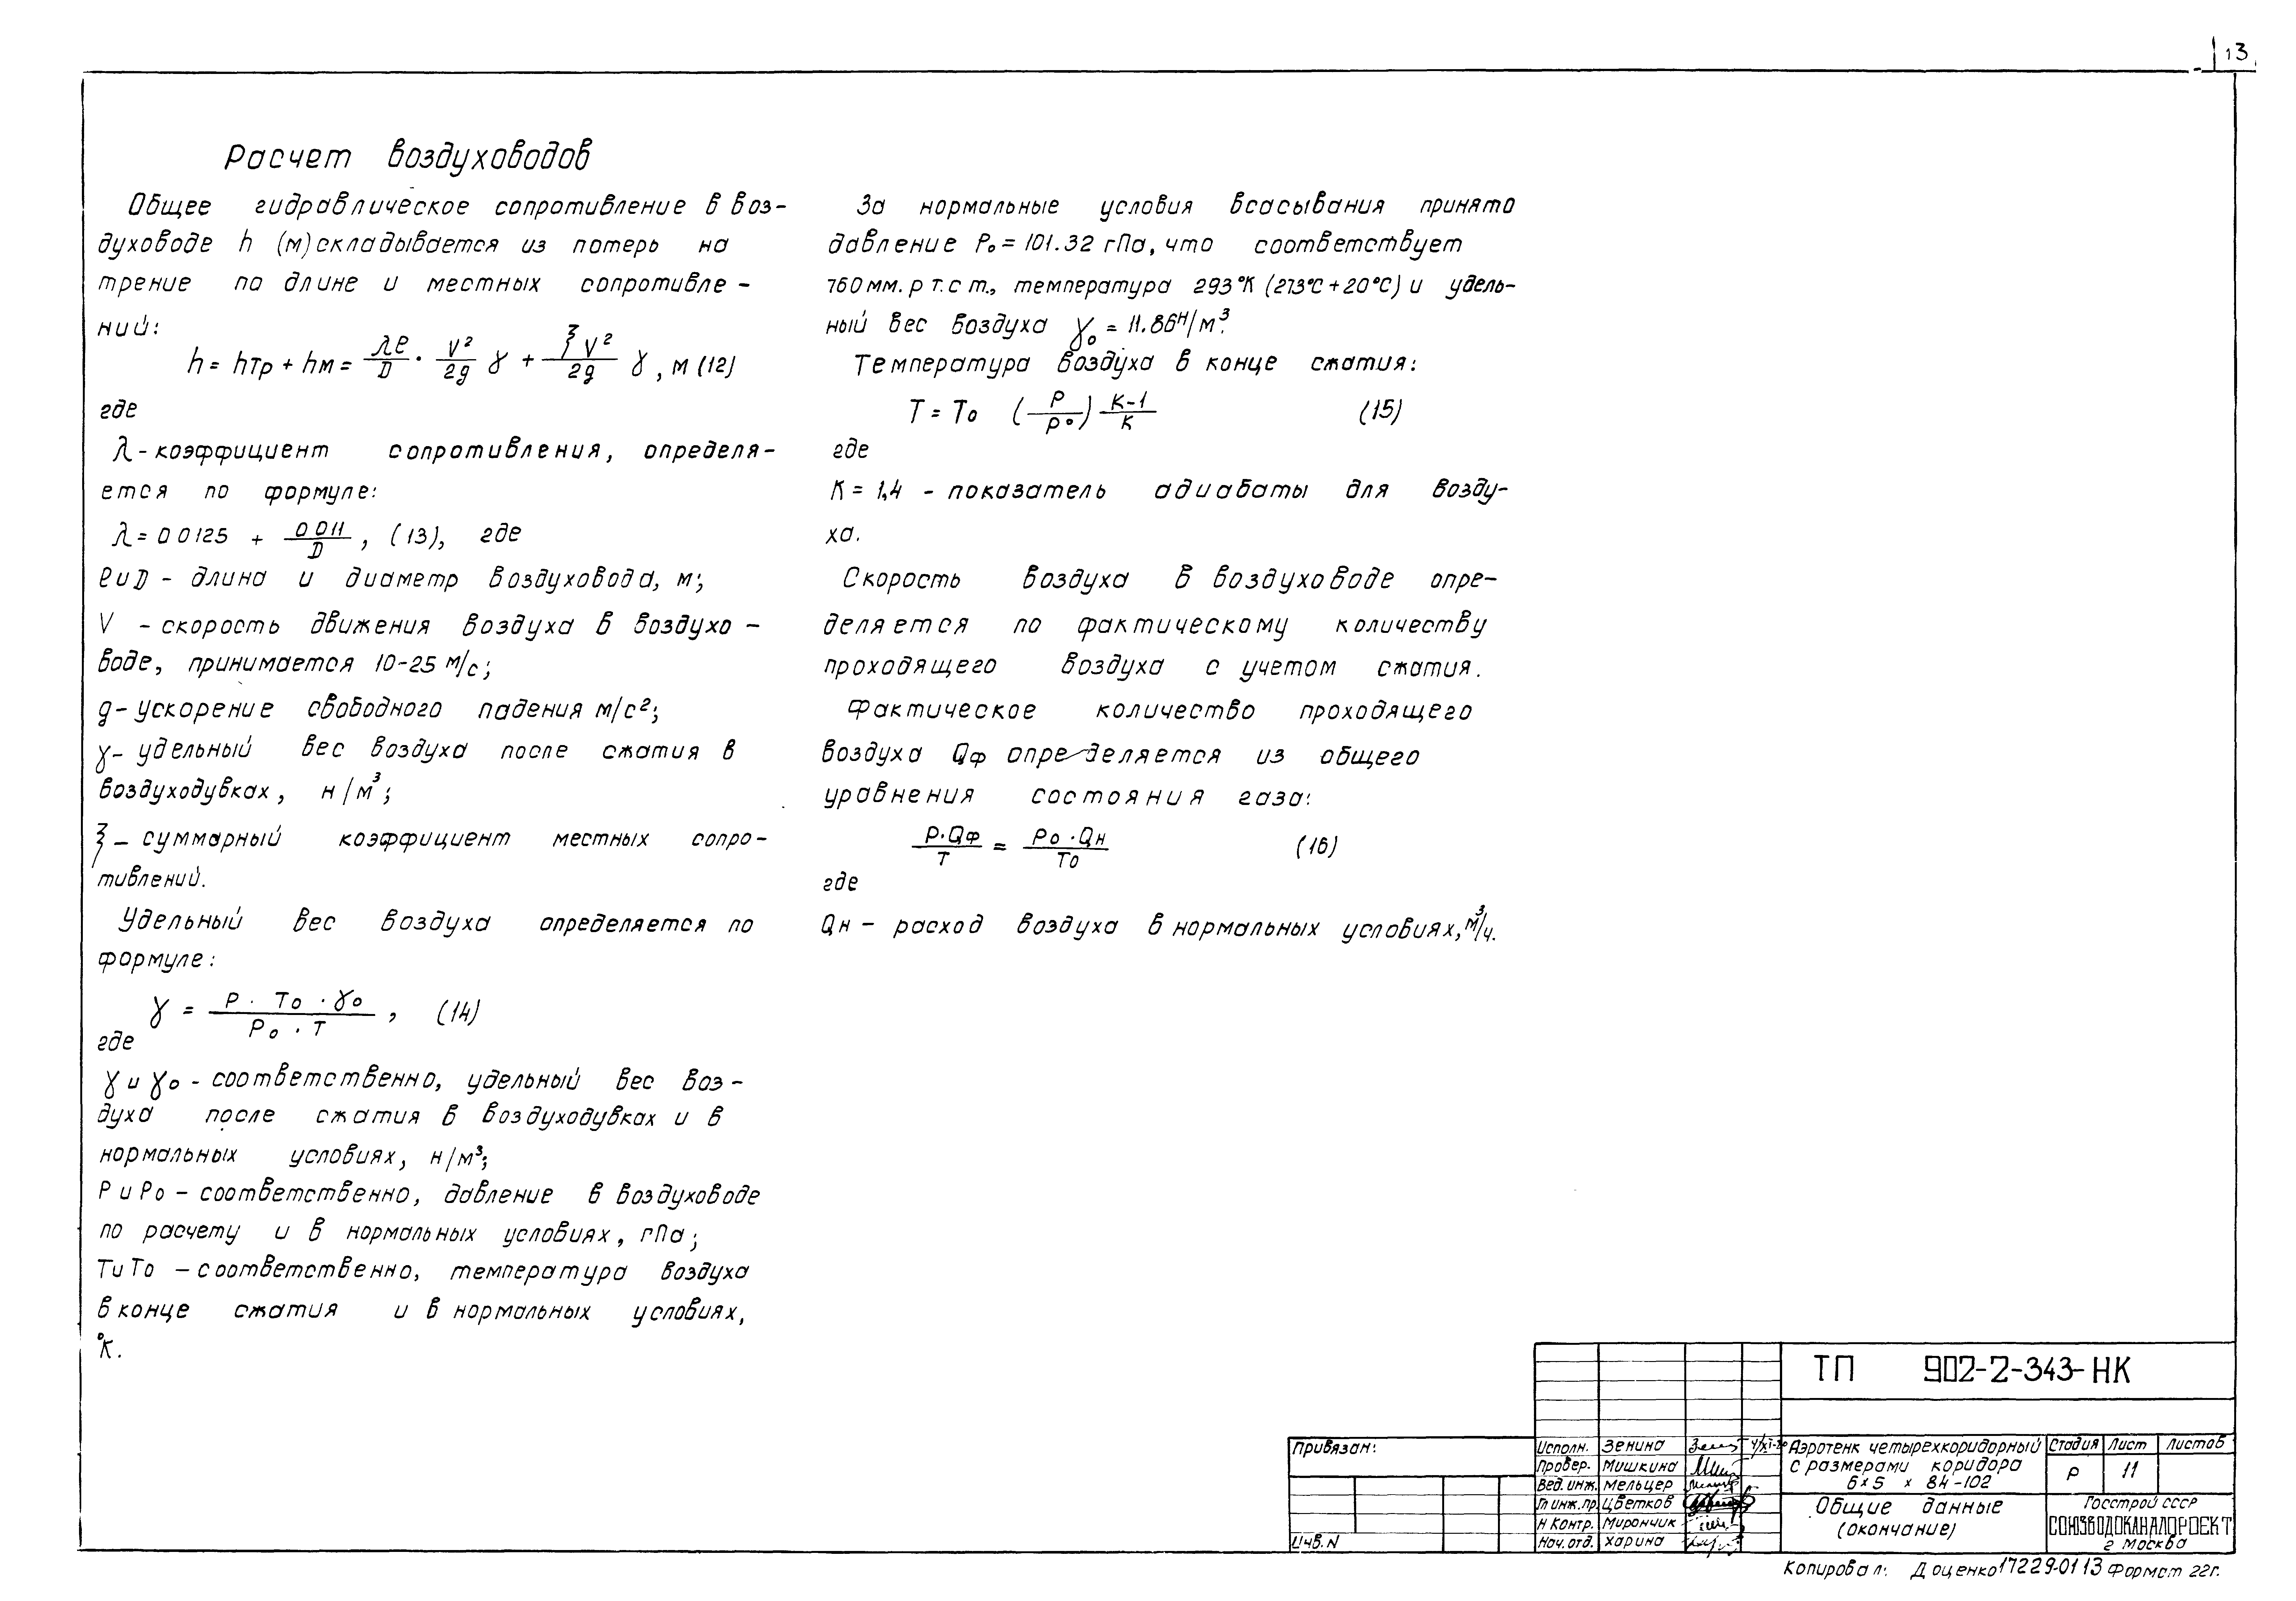 13
Расчет воздуховодов
Общее гидравлическое сопротивление в воз-
духоводе h (м) складывается из потерь на
трение по длине и местных сопротивле-
ний:
h = hтр + hм = λℓ/D · V²/2g γ + ξV²/2g γ, м (12)
где
λ - коэффициент сопротивления, определя-
ется по формуле:
λ = 0 0125 + 0 011/D, (13), где
ℓ и D - длина и диаметр воздуховода, м;
V - скорость движения воздуха в воздухо-
воде, принимается 10-25 м/с;
g - ускорение свободного падения м/с²;
γ - удельный вес воздуха после сжатия в
воздуходувках, н/м³;
ξ - суммарный коэффициент местных сопро-
тивлений.
Удельный вес воздуха определяется по
формуле:
γ = P · To · γo / Po · T, (14)
где
γ и γo - соответственно, удельный вес воз-
духа после сжатия в воздуходувках и в
нормальных условиях, н/м³;
P и Po - соответственно, давление в воздуховоде
по расчету и в нормальных условиях, гПа;
T и To - соответственно, температура воздуха
в конце сжатия и в нормальных условиях,
°К.
За нормальные условия всасывания принято
давление Po = 101.32 гПа, что соответствует
760 мм. рт. ст., температура 293°К (273°С + 20°С) и удель-
ный вес воздуха γo = 11.86 н/м³.
Температура воздуха в конце сжатия:
T = To (P/Po) K-1/K (15)
где
K = 1,4 - показатель адиабаты для возду-
ха.
Скорость воздуха в воздуховоде опре-
деляется по фактическому количеству
проходящего воздуха с учетом сжатия.
Фактическое количество проходящего
воздуха Qф определяется из общего
уравнения состояния газа:
P·Qф/T = Po·Qн/To (16)
где
Qн - расход воздуха в нормальных условиях, м³/ч.
ТП 902-2-343-НК
Привязан:
Инв. N
Исполн. Зенина
Провер. Мишкина
Вед. инж. Мельцер
Гл инж. пр. Цветков
Н Контр. Мирончик
Нач. отд. Харина
Аэротенк четырехкоридорный
с размерами коридора
6×5 × 84-102
Стадия Лист Листов
Р 11
Общие данные
(окончание)
Госстрой СССР
СОЮЗВОДОКАНАЛПРОЕКТ
г Москва
Копировал: Доценко 17229-01 13 Формат 22г.